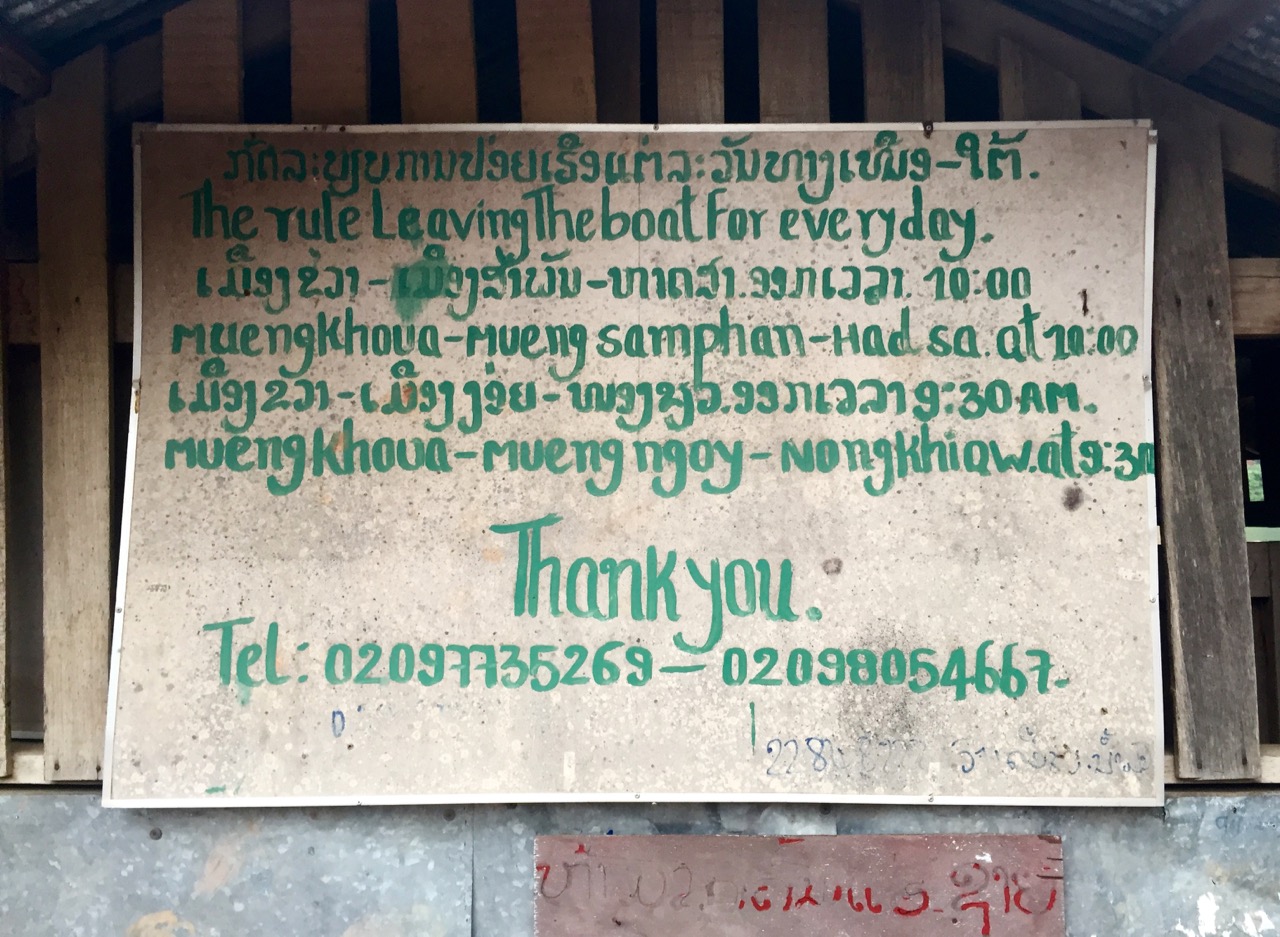 ກົດລະບຽບການປ່ອຍເຮືອແຕ່ລະວັນທາງເໜືອ-ໃຕ້.
The rule Leaving The boat For everyday.
ເມືອງຂວາ-ເມືອງສຳພັນ-ຫາດສາ.ອອກເວລາ. 10:00
MuengKhoua-Mueng samphan-Had sa. at 10:00
ເມືອງຂວາ-ເມືອງງ່ອຍ-ໜອງຂຽວ.ອອກເວລາ 9:30 AM.
MuengKhoua-Mueng ngoy-NongKhiaw.at 9:30
Thank you.
Tel: 02097735269-02098054667.